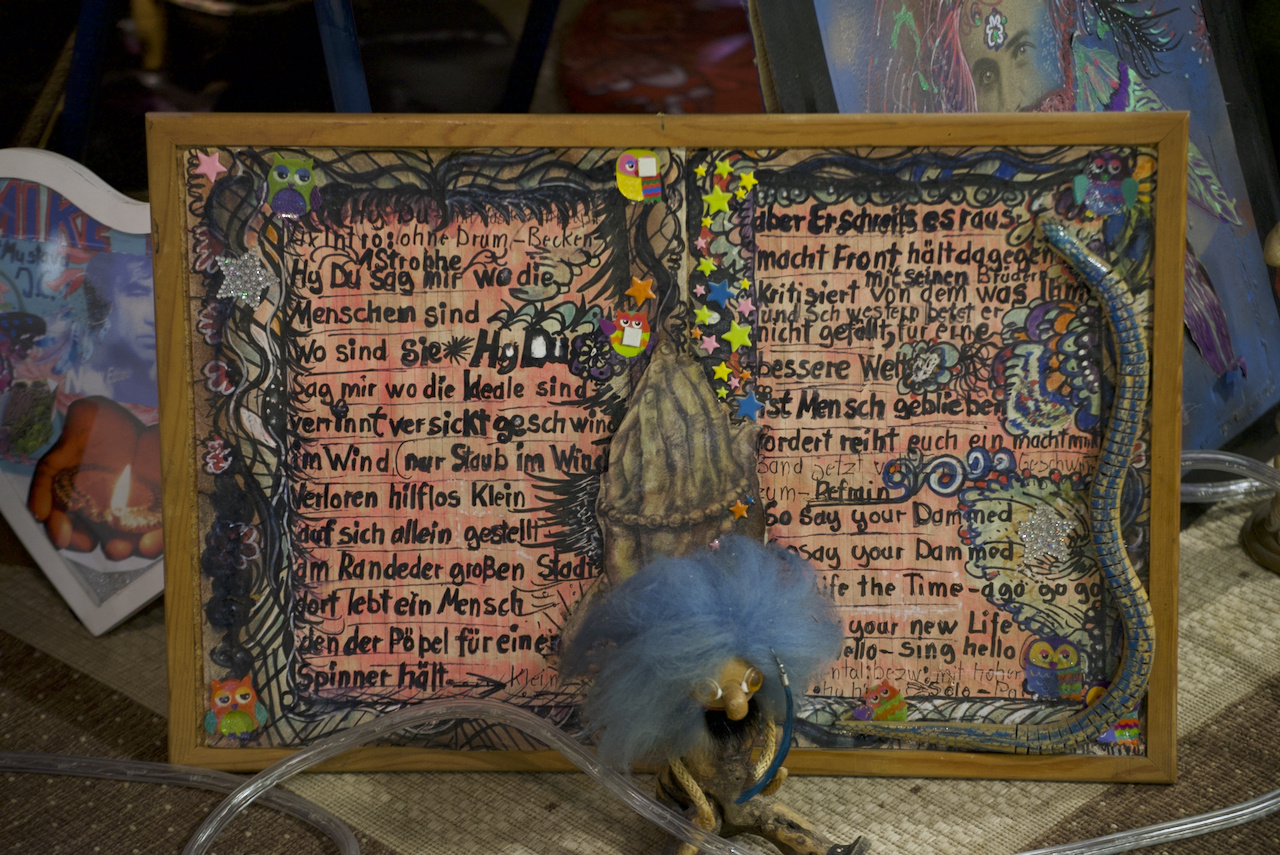 Hy Du
Intro: ohne Drum-Becken
1 Strobhe
Hy Du sag mir wo die
Menschen sind
wo sind sie Hy Du
sag mir wo die Ideale sind
verrinnt versickt geschwind
im Wind (nur Staub im Wind
Verloren hilflos Klein
auf sich allein gestellt
am Randeder großen Stadt
dort lebt ein Mensch
den der Pöpel für einen
Spinner hält. Klein
aber Er schreits es raus
macht Front hält dagegen
mit seinen Brüdern
Kritisiert von dem was Ihm
und Schwestern betet er
nicht gefällt, für eine
bessere Welt
ist Mensch geblieben
fordert reiht euch ein macht mit
Band setzt
Refrain
So say your Dammed
say your Dammed
ife the Time-ago go go
your new Life
ello-sing hello
Solo-Pa
MIKE